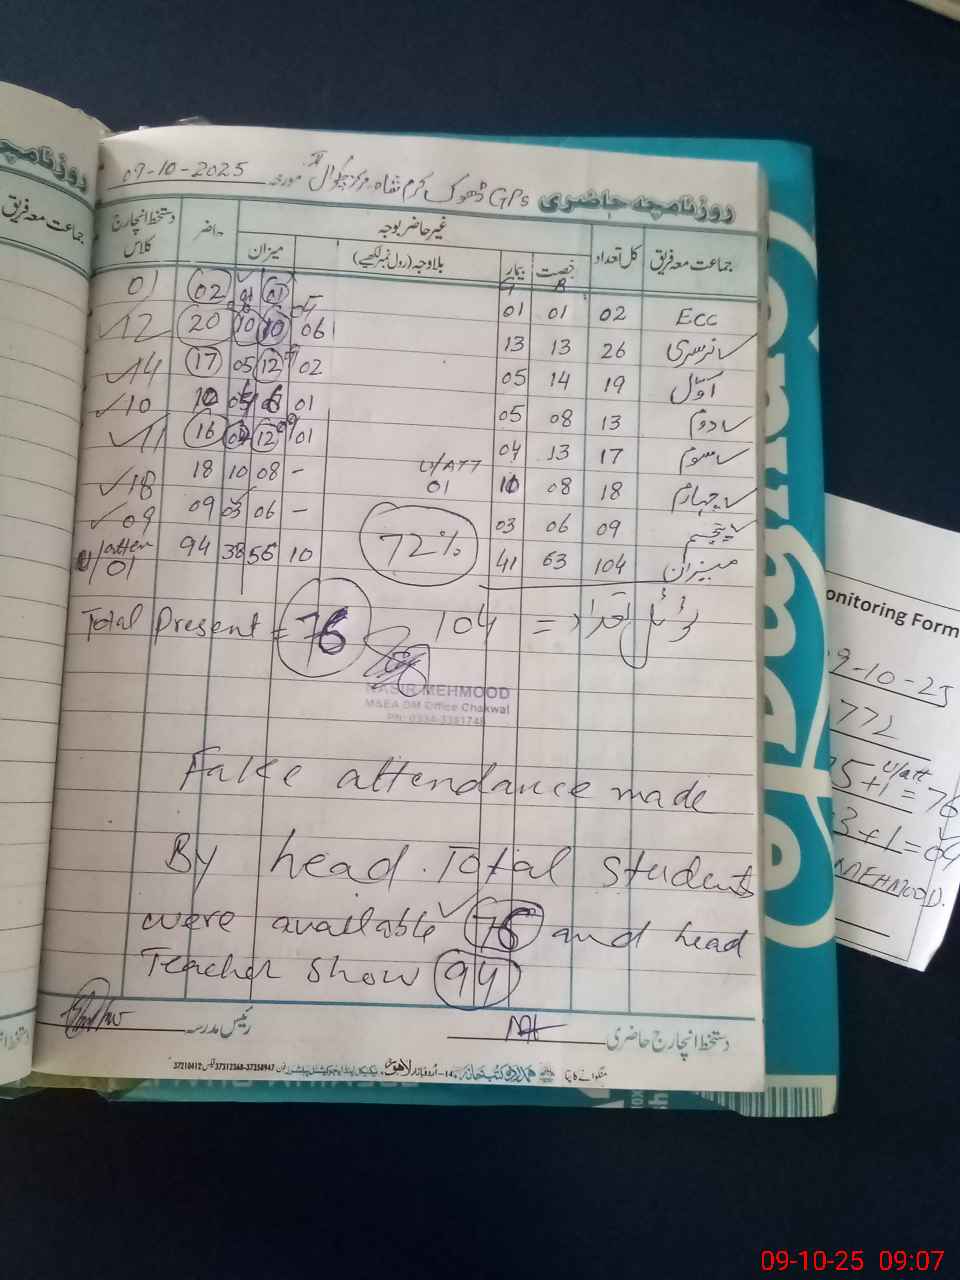 روزنامچہ حاضری GPS ڈھوک کرم شاہ، مرکز چکوال مورخہ 09-10-2025
جماعت معہ فریق کل تعداد غیر حاضر بوجہ حاضر دستخط انچارج کلاس
رخصت بیمار بلاوجہ (رول نمبر لکھیے) میزان
ECC 02 01 01 01 01 02 01
نرسری 26 13 13 06 10 10 20 12
اوّل 19 14 05 02 12 05 17 14
دوم 13 08 05 01 10 10
سوم 17 13 04 01 12 16 11
چہارم 18 08 10 U/ATT 01 - 08 10 18 18
پنجم 09 06 03 - 06 03 09 09
میزان 104 63 41 72% 10 56 38 94 U/atten 01
Total Present = 76 104 = کل تعداد
NASIR MEHMOOD
M&EA DM Office Chakwal
Fake attendance made
By head. Total students
were available 76 and head
Teacher show 94
دستخط انچارج حاضری رئیس مدرسہ
37210412 37312368-37358947
روزنامچہ
جماعت معہ فریق
onitoring Form
9-10-25
772
5+1 = 76
U/att
3+1 = 04
MEHMOOD.
09-10-25 09:07